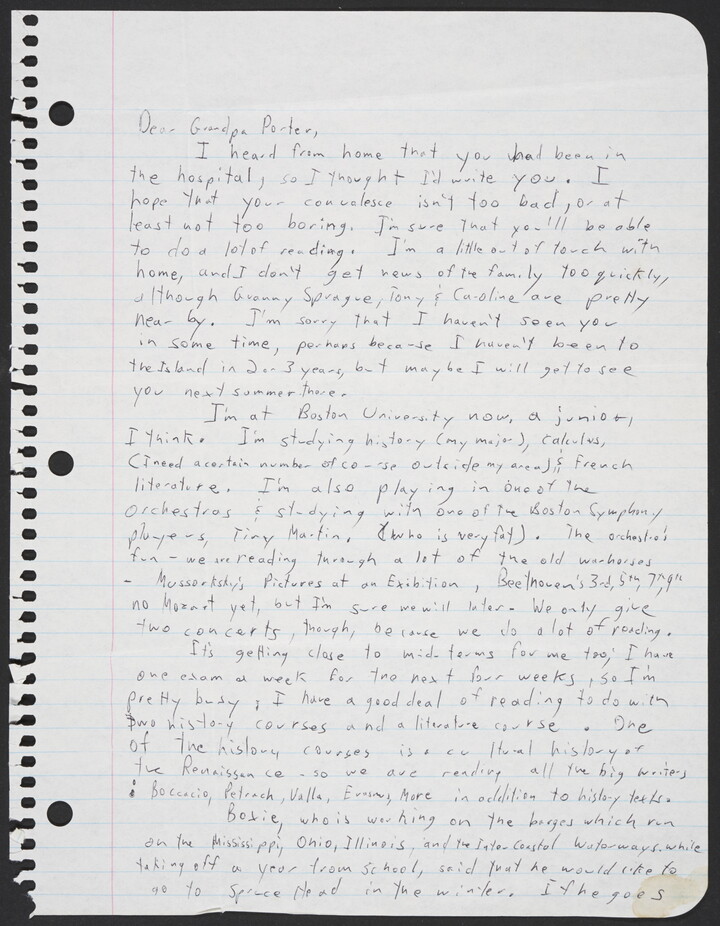 Dear Grandpa Porter,
I heard from home that you had been in
the hospital, so I thought I'd write you. I
hope that your convalesce isn't too bad, or at
least not too boring. I'm sure that you'll be able
to do a lot of reading. I'm a little out of touch with
home, and I don't get news of the family too quickly,
although Granny Sprague, Tony & Caroline are pretty
near by. I'm sorry that I haven't seen you
in some time, perhaps because I haven't been to
the Island in 2 or 3 years, but maybe I will get to see
you next summer there.
I'm at Boston University now, a junior,
I think. I'm studying history (my major), calculus,
(I need a certain number of course outside my area) & French
literature. I'm also playing in one of the
orchestras & studying with one of the Boston Symphony
players, Tiny Martin. (who is very fat). The orchestra's
fun - we are reading through a lot of the old warhorses
- Mussorksky's Pictures at an Exibition, Beethoven's 3rd, 5th, 7th, 9th
no Mozart yet, but I'm sure we will later. We only give
two concerts, though, because we do a lot of reading.
It's getting close to mid-terms for me too; I have
one exam a week for the next four weeks, so I'm
pretty busy; I have a good deal of reading to do with
two history courses and a literature course. One
of the history courses is a cultural history of
the Renaissance - so we are reading all the big writers
: Boccacio, Petrach, Valla, Erasmus, More in addition to history texts.
Bosie, who is working on the barges which run
on the Mississippi, Ohio, Illinois, and the Inter Coastal Waterways while
taking off a year from school, said that he would like to
go to Spruce Head in the winter. If he goes